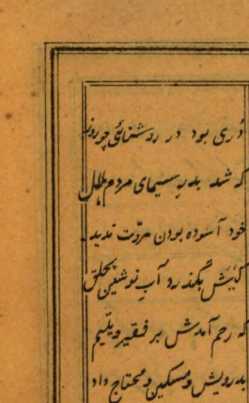 دُری بود در روشنائی چو روز
که شد بدر سیمای مردم هلال
خود آسوده بودن مروّت ندید
کیش بگذرد آب نوشین بحلق
که رحم آمدش بر فقیر و یتیم
بدرویش و مسکین و محتاج داد